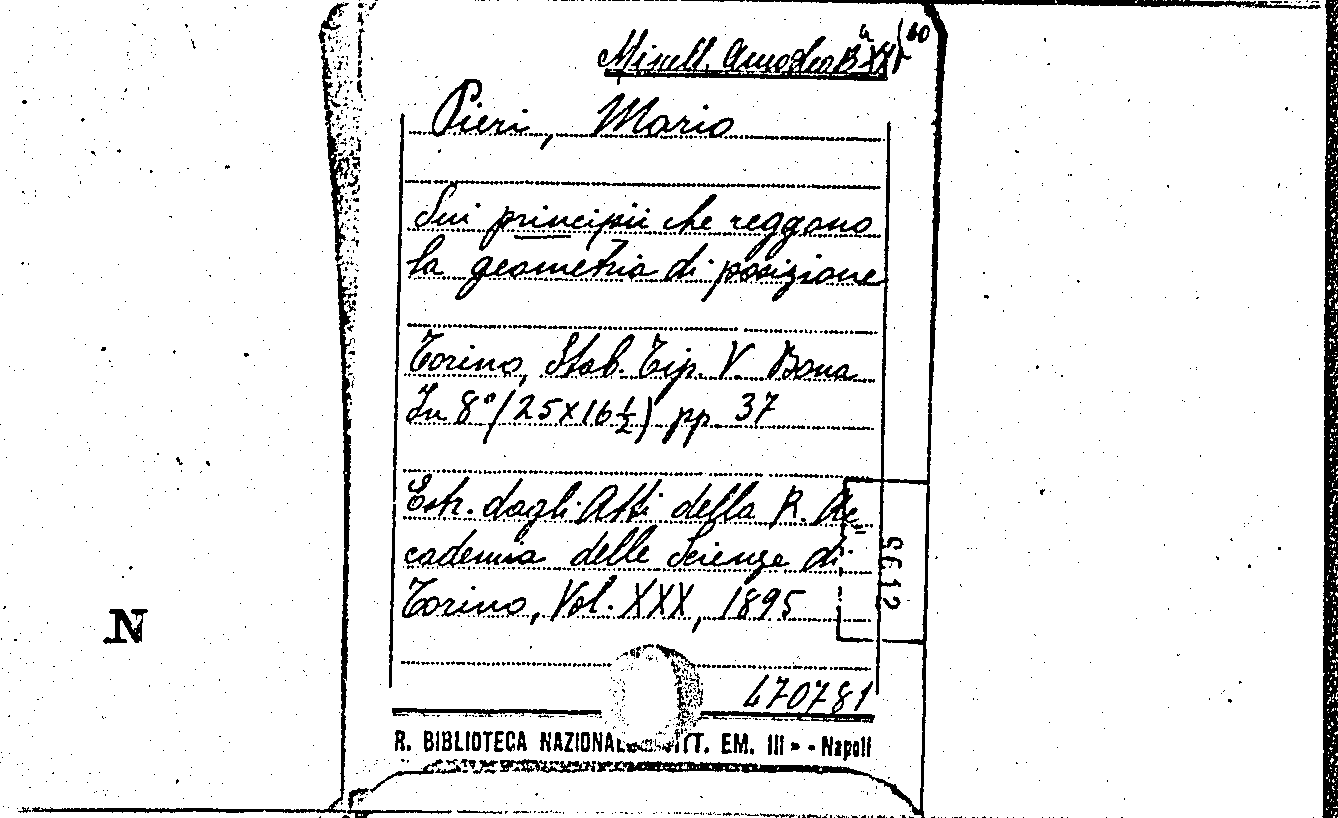 Miscell. Amodeo B XX
a (60
Pieri, Mario
Sui principii che reggono
la geometria di posizione
Torino, Stab. Tip. V. Bona
In 8° (25x16½) pp. 37
Estr. dagli Atti della R. Ac=
cademia delle Scienze di
Torino, Vol. XXX, 1895
9612
N
470781
R. BIBLIOTECA NAZIONAL TT. EM. III - Napoli